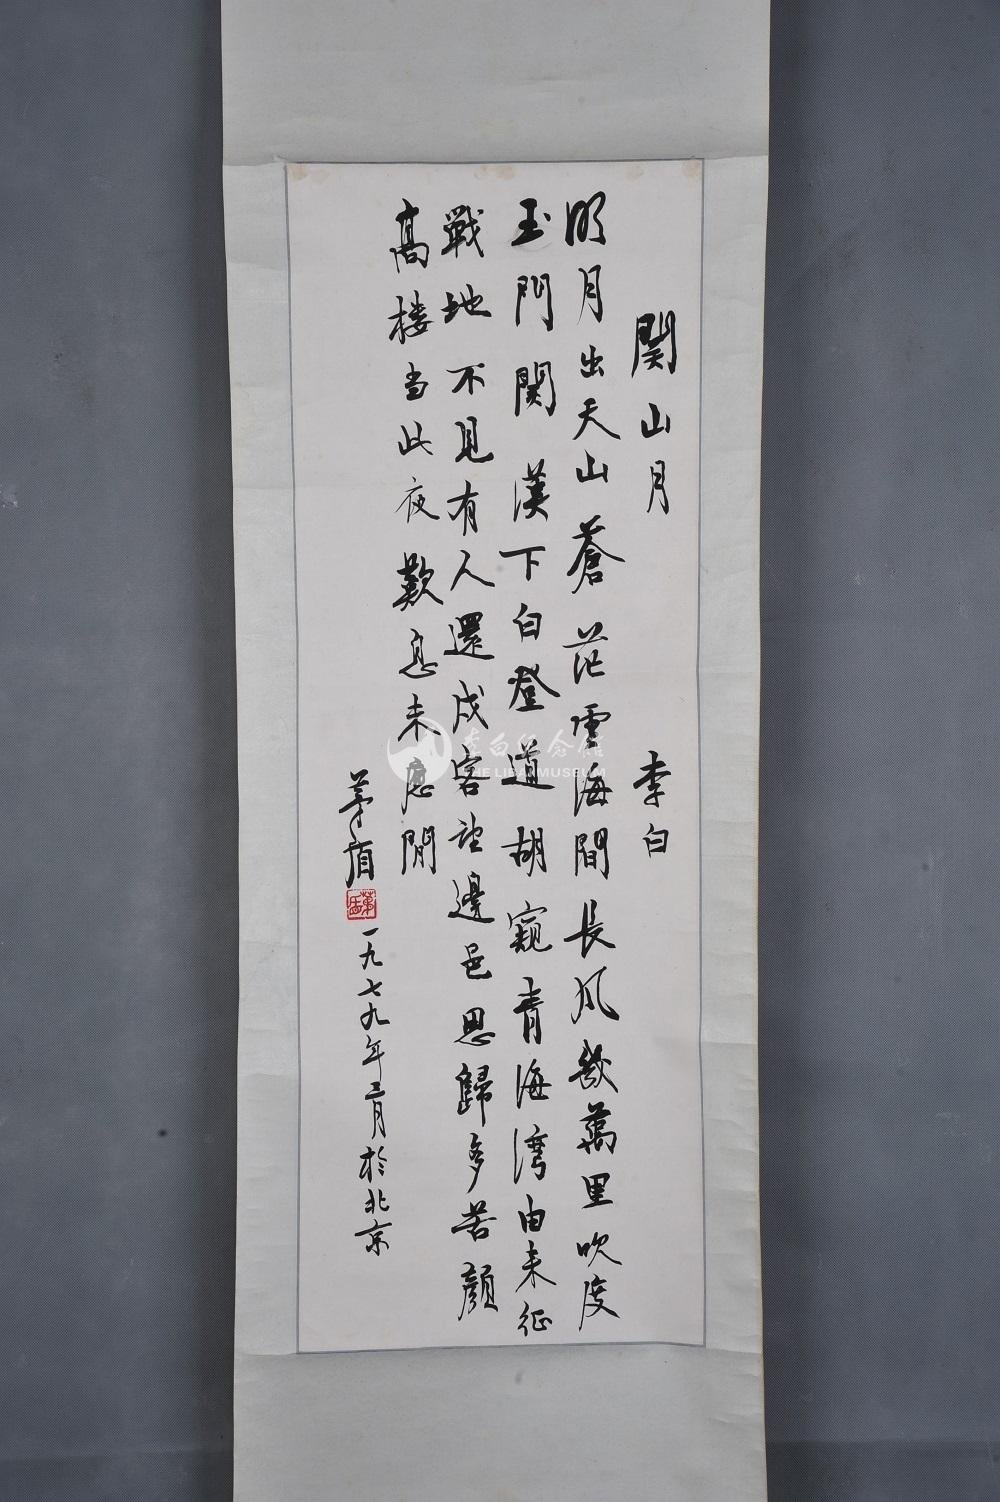 関山月 李白
明月出天山蒼茫雲海間長風幾萬里吹度
玉門関漢下白登道胡窺青海湾由来征
戰地不見有人還戍客望邊邑思歸多苦顔
高楼当此夜歎息未應閒
茅盾
一九七九年三月於北京
李白纪念馆
THE LIBAI MUSEUM